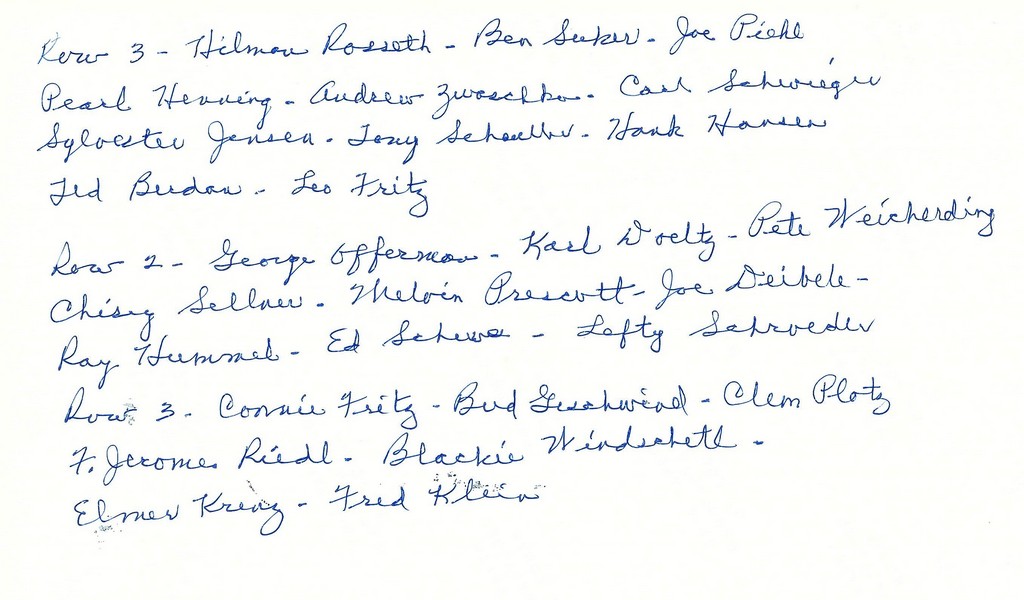 Row 3 - Hilman Rosseth - Ben Suker - Joe Piehl
Pearl Henning - Andrew Zwaschka - Carl Schwieger
Sylvester Jensen - Tony Schaller - Hank Hansen
Ted Burdan - Leo Fritz
Row 2 - George Offerman - Karl Woeltz - Pete Weicherding
Chisey Sellner - Melvin Prescott - Joe Deibele -
Ray Hummel - Ed - Lefty Schroeder
Row 3 - Connie Fritz - Bud Geschwind - Clem Plotz
F. Jerome Riedl - Blackie Windschetl -
Elmer Krenz - Fred Klein